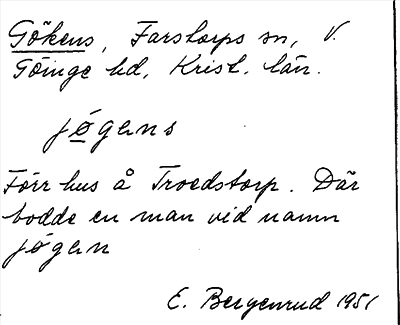 Gökens, Farstorps sn, V.
Göinge hd, Krist. län.
jøgans
Förr hus å Troedstorp. Där
bodde en man vid namn
jøgan
E. Bergenrud 1951